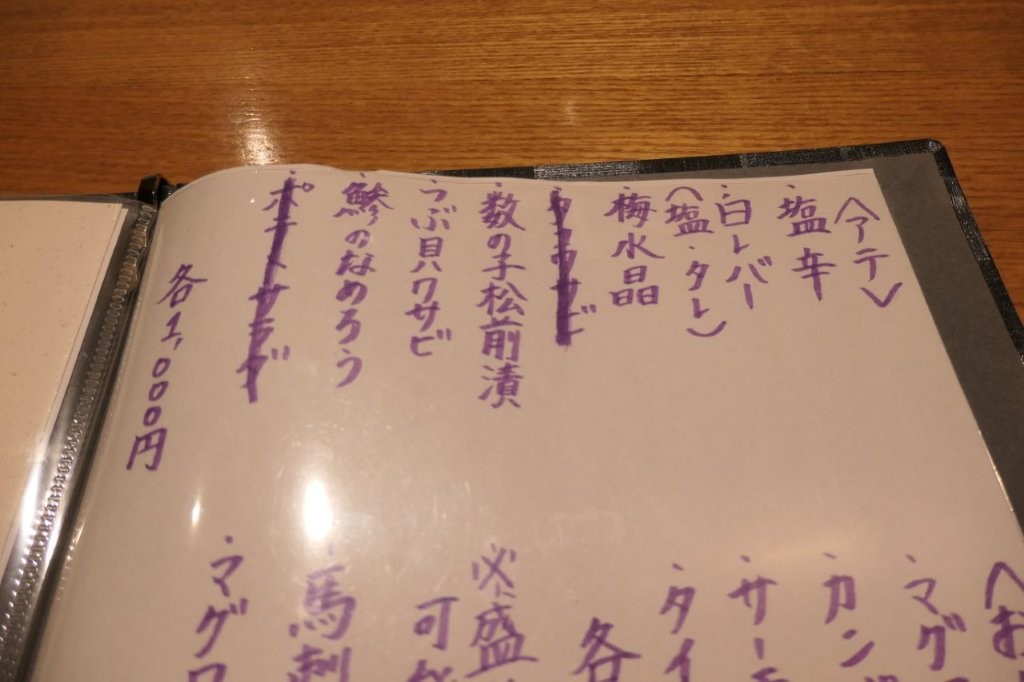 〈アテ〉
・塩辛
・白レバー
(塩・タレ)
・梅水晶
・数の子松前漬
・つぶ貝ワサビ
・鯵のなめろう
・ポテトサラダ
各1,000円
・マグ
・カン
・サーモ
・タイ
各
必ず盛
可
・馬刺
・マグロ